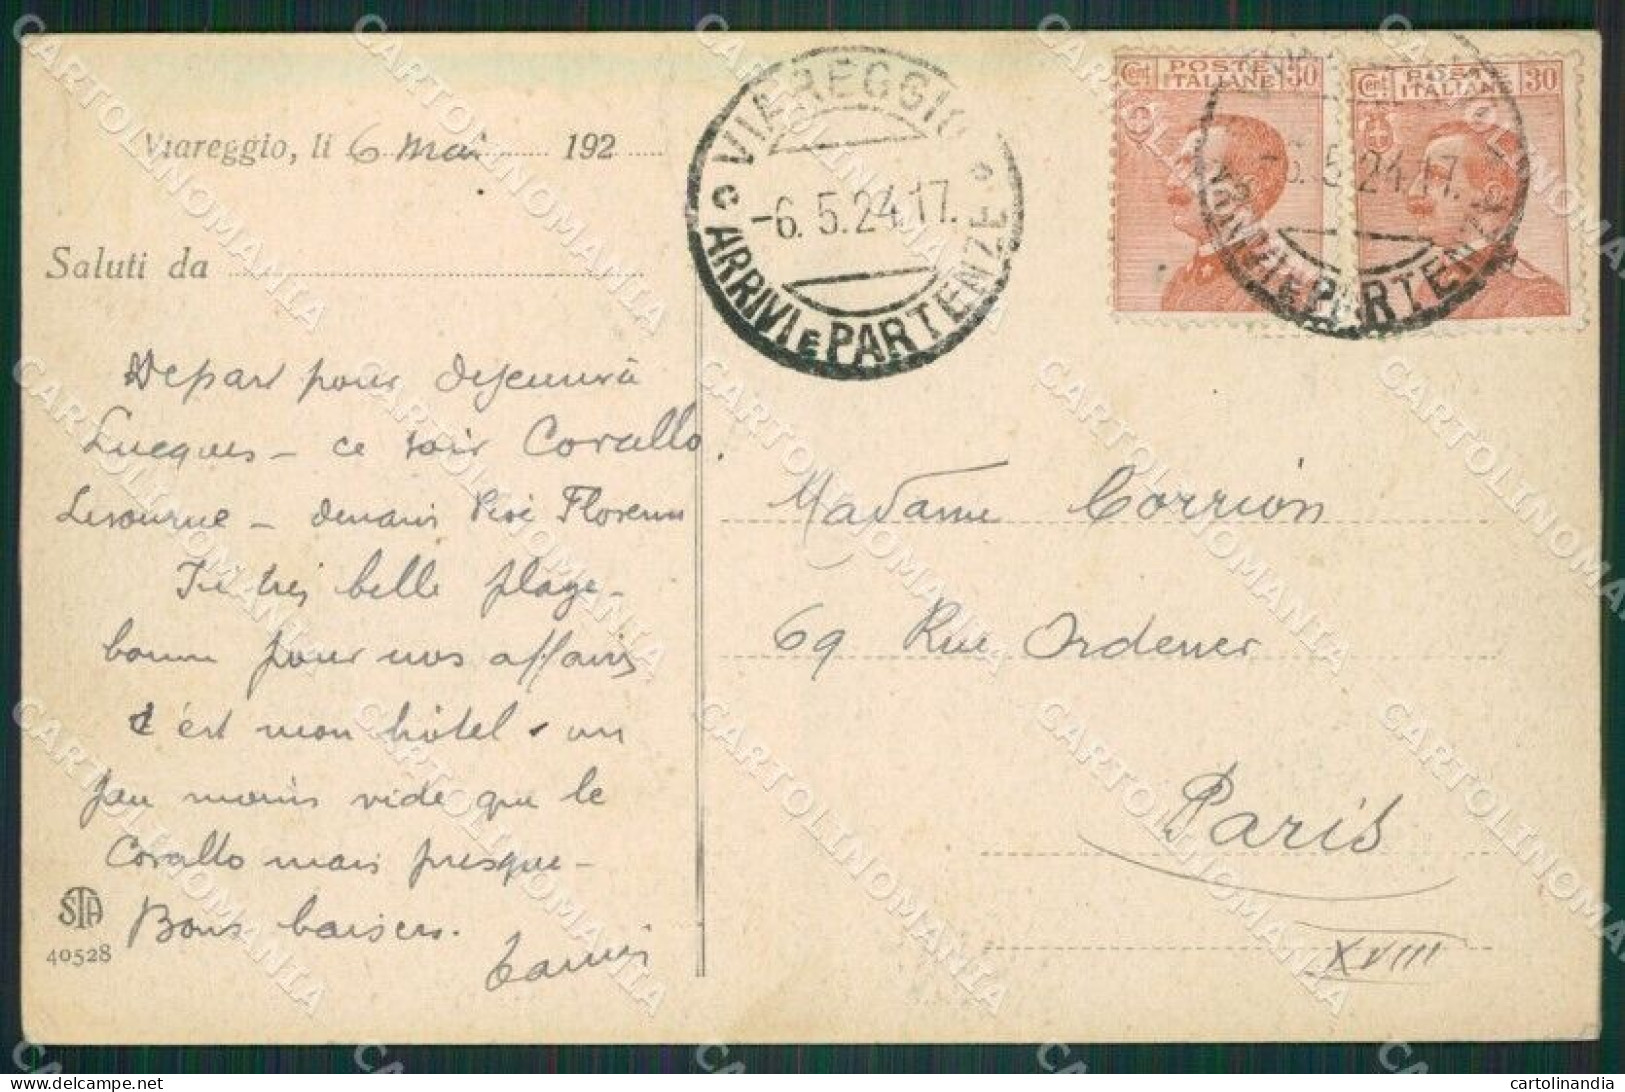 Viareggio, li 6 Mai 192
Saluti da
Depart pour déjeuner à
Lucques - ce soir Corallo
Livourne - demain Pise Florence
Ici très belle plage -
bonne pour nos affaires
C'est mon hôtel - un
peu moins vide que le
Corallo mais presque -
Bons baisers.
STA
40528
VIAREGGIO
-6.5.24.17.
ARRIVI E PARTENZE
Cent. POSTE ITALIANE 30
Cent. POSTE ITALIANE 30
-6.5.24.17.
ARRIVI E PARTENZE
Madame Corrion
69 Rue Ordener
Paris
XVIII
CARTOLINOMANIA
cartolinandia